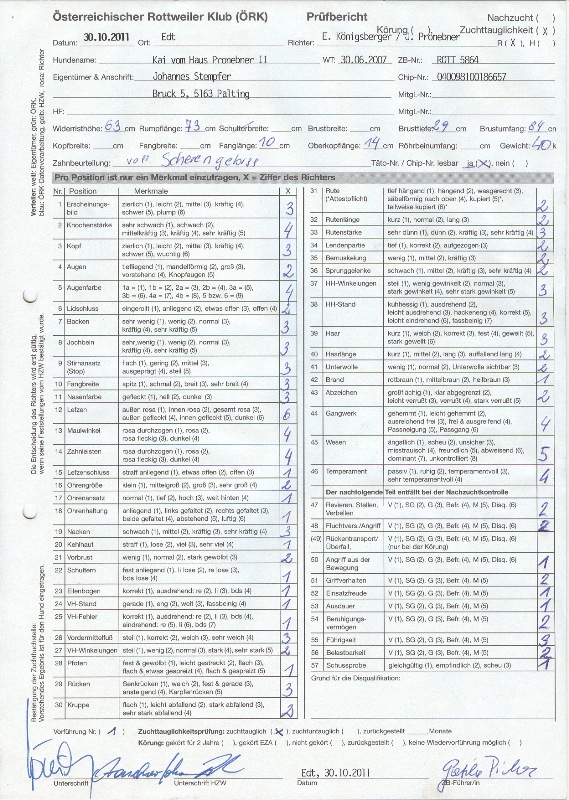 Österreichischer Rottweiler Klub (ÖRK) Prüfbericht Nachzucht ( )
Körung ( ) Zuchttauglichkeit (X)
Datum: 30.10.2011 Ort: Edt Richter: E. Königsberger / J. Pronebner R (X), H ( )
Hundename: Kai vom Haus Pronebner II WT: 30.06.2007 ZB-Nr: ROTT 5864
Eigentümer & Anschrift: Johannes Stempfer Chip-Nr.: 040098100186657
Bruck 5, 5163 Palting Mitgl.-Nr.:
HF: Mitgl.-Nr.:
Widerristhöhe: 63 cm Rumpflänge: 73 cm Schulterbreite: cm Brustbreite: cm Brusttiefe: 29 cm Brustumfang: 84 cm
Kopfbreite: cm Fangbreite: cm Fanglänge: 10 cm Oberkopflänge: 14 cm Röhrbeinumfang: cm Gewicht: 40 k
Zahnbeurteilung: voll Scherengebiss Täto-Nr. / Chip-Nr. lesbar ja (X), nein ( )
Pro Position ist nur ein Merkmal einzutragen, X = Ziffer des Richters
Nr. Position Merkmale X
1 Erscheinungsbild zierlich (1), leicht (2), mittel (3), kräftig (4), schwer (5), plump (6) 3
2 Knochenstärke sehr schwach (1), schwach (2), mittelkräftig (3), kräftig (4), sehr kräftig (5) 4
3 Kopf zierlich (1), leicht (2), mittel (3), kräftig (4), schwer (5), wuchtig (6) 3
4 Augen tiefliegend (1), mandelförmig (2), groß (3), vorstehend (4), Knopfaugen (5) 2
5 Augenfarbe 1a = (1), 1b = (2), 2a = (3), 2b = (4), 3a = (5), 3b = (6), 4a = (7), 4b = (8), 5 bzw. 6 = (9) 4
6 Lidschluss eingerollt (1), anliegend (2), etwas offen (3), offen (4) 2
7 Backen sehr wenig (1), wenig (2), normal (3), kräftig (4), sehr kräftig (5) 3
8 Jochbein sehr wenig (1), wenig (2), normal (3), kräftig (4), sehr kräftig (5) 3
9 Stirnansatz (Stop) flach (1), gering (2), mittel (3), ausgeprägt (4), steil (5) 3
10 Fangbreite spitz (1), schmal (2), breit (3), sehr breit (4) 3
11 Nasenfarbe gefleckt (1), hell (2), dunkel (3) 3
12 Lefzen außen rosa (1), innen rosa (2), gesamt rosa (3), außen gefleckt (4), innen gefleckt (5), dunkel (6) 6
13 Maulwinkel rosa durchzogen (1), rosa (2), rosa fleckig (3), dunkel (4) 4
14 Zahnleisten rosa durchzogen (1), rosa (2), rosa fleckig (3), dunkel (4) 4
15 Lefzenschluss straff anliegend (1), etwas offen (2), offen (3) 1
16 Ohrengröße klein (1), mittelgroß (2), groß (3), sehr groß (4) 2
17 Ohrenansatz normal (1), tief (2), hoch (3), weit hinten (4) 1
18 Ohrenhaltung anliegend (1), links gefaltet (2), rechts gefaltet (3), beide gefaltet (4), abstehend (5), luftig (6) 1
19 Nacken schwach (1), mittel (2), kräftig (3), sehr kräftig (4) 3
20 Kehlhaut straff (1), lose (2), viel (3), sehr viel (4) 1
21 Vorbrust wenig (1), normal (2), stark gewölbt (3) 2
22 Schultern fest anliegend (1), li lose (2), re lose (3), bds lose (4) 1
23 Ellenbogen korrekt (1), ausdrehend: re (2), li (3), bds (4) 1
24 VH-Stand gerade (1), eng (2), weit (3), fassbeinig (4) 1
25 VH-Fehler korrekt (1), ausdrehend: re (2), li (3), bds (4), eindrehend: re (5), li (6), bds (7) 1
26 Vordermittelfuß steil (1), korrekt (2), weich (3), sehr weich (4) 3
27 VH-Winkelungen steil (1), wenig (2), normal (3), stark (4), sehr stark (5) 2
28 Pfoten fest & gewölbt (1), leicht gestreckt (2), flach (3), flach & etwas gespreizt (4), flach & gespreizt (5) 1
29 Rücken Senkrücken (1), weich (2), fest & gerade (3), ansteigend (4), Karpfenrücken (5) 3
30 Kruppe flach (1), leicht abfallend (2), stark abfallend (3), sehr stark abfallend (4) 2
31 Rute (*Attestpflicht) tief hängend (1), hängend (2), waagerecht (3), säbelförmig nach oben (4), kupiert (5)*, teilweise kupiert (6)* 2
32 Rutenlänge kurz (1), normal (2), lang (3) 2
33 Rutenstärke sehr dünn (1), dünn (2), kräftig (3), sehr kräftig (4) 3
34 Lendenpartie tief (1), korrekt (2), aufgezogen (3) 2
35 Bemuskelung wenig (1), mittel (2), kräftig (3) 2
36 Sprunggelenke schwach (1), mittel (2), kräftig (3), sehr kräftig (4) 2
37 HH-Winkelungen steil (1), wenig gewinkelt (2), normal (3), stark gewinkelt (4), sehr stark gewinkelt (5) 3
38 HH-Stand kuhhessig (1), ausdrehend (2), leicht ausdrehend (3), hackeneng (4), korrekt (5), leicht eindrehend (6), fassbeinig (7) 3
39 Haar kurz (1), weich (2), korrekt (3), fest (4), gewellt (5), stark gewellt (6) 3
40 Haarlänge kurz (1), mittel (2), lang (3), auffallend lang (4) 2
41 Unterwolle wenig (1), normal (2), Unterwolle sichtbar (3) 2
42 Brand rotbraun (1), mittelbraun (2), hellbraun (3) 1
43 Abzeichen großflächig (1), klar abgegrenzt (2), leicht verrußt (3), verrußt (4), stark verrußt (5) 2
44 Gangwerk gehemmt (1), leicht gehemmt (2), ausreichend frei (3), frei & ausgreifend (4), Passneigung (5), Passgang (6) 4
45 Wesen ängstlich (1), scheu (2), unsicher (3), misstrauisch (4), freundlich (5), abweisend (6), dominant (7), unkontrolliert (8) 5
46 Temperament passiv (1), ruhig (2), temperamentvoll (3), sehr temperamentvoll (4) 4
Der nachfolgende Teil entfällt bei der Nachzuchtkontrolle
47 Revieren, Stellen, Verbellen V (1), SG (2), G (3), Befr. (4), M (5), Disq. (6) 2
48 Fluchtvers./Angriff V (1), SG (2), G (3), Befr. (4), M (5), Disq. (6) 2
(49) (Rückentransport/Überfall) V (1), SG (2), G (3), Befr. (4), M (5), Disq. (6) (nur bei der Körung)
50 Angriff aus der Bewegung V (1), SG (2), G (3), Befr. (4), M (5), Disq. (6) 1
51 Griffverhalten V (1), SG (2), G (3), Befr. (4), M (5) 2
52 Einsatzfreude V (1), SG (2), G (3), Befr. (4), M (5) 1
53 Ausdauer V (1), SG (2), G (3), Befr. (4), M (5) 1
54 Beruhigungsvermögen V (1), SG (2), G (3), Befr. (4), M (5) 2
55 Führigkeit V (1), SG (2), G (3), Befr. (4), M (5)
56 Belastbarkeit V (1), SG (2), G (3), Befr. (4), M (5) 2
57 Schussprobe gleichgültig (1), empfindlich (2), scheu (3) 1
Grund für die Disqualifikation:
Vorführung Nr. ( 1 ) Zuchttauglichkeitsprüfung: zuchttauglich (X), zuchtuntauglich ( ), zurückgestellt Monate
Körung: gekört für 2 Jahre ( ), gekört EZA ( ), nicht gekört ( ), zurückgestellt ( ), keine Wiedervorführung möglich ( )
Edt, 30.10.2011
Unterschrift Unterschrift HZW Datum ZB-Führer/in
Verteiler: weiß: Eigentümer, grün: ÖRK, blau: ÖRK Datenverarbeitung, gelb: HZW, rosa: Richter
Die Entscheidung des Richters wird erst gültig, wenn seine Feststellungen vom HZW bestätigt wurde.
Bestätigung der Zuchtbuchstelle: Vorstehendes Ergebnis ist für den Hund eingetragen.